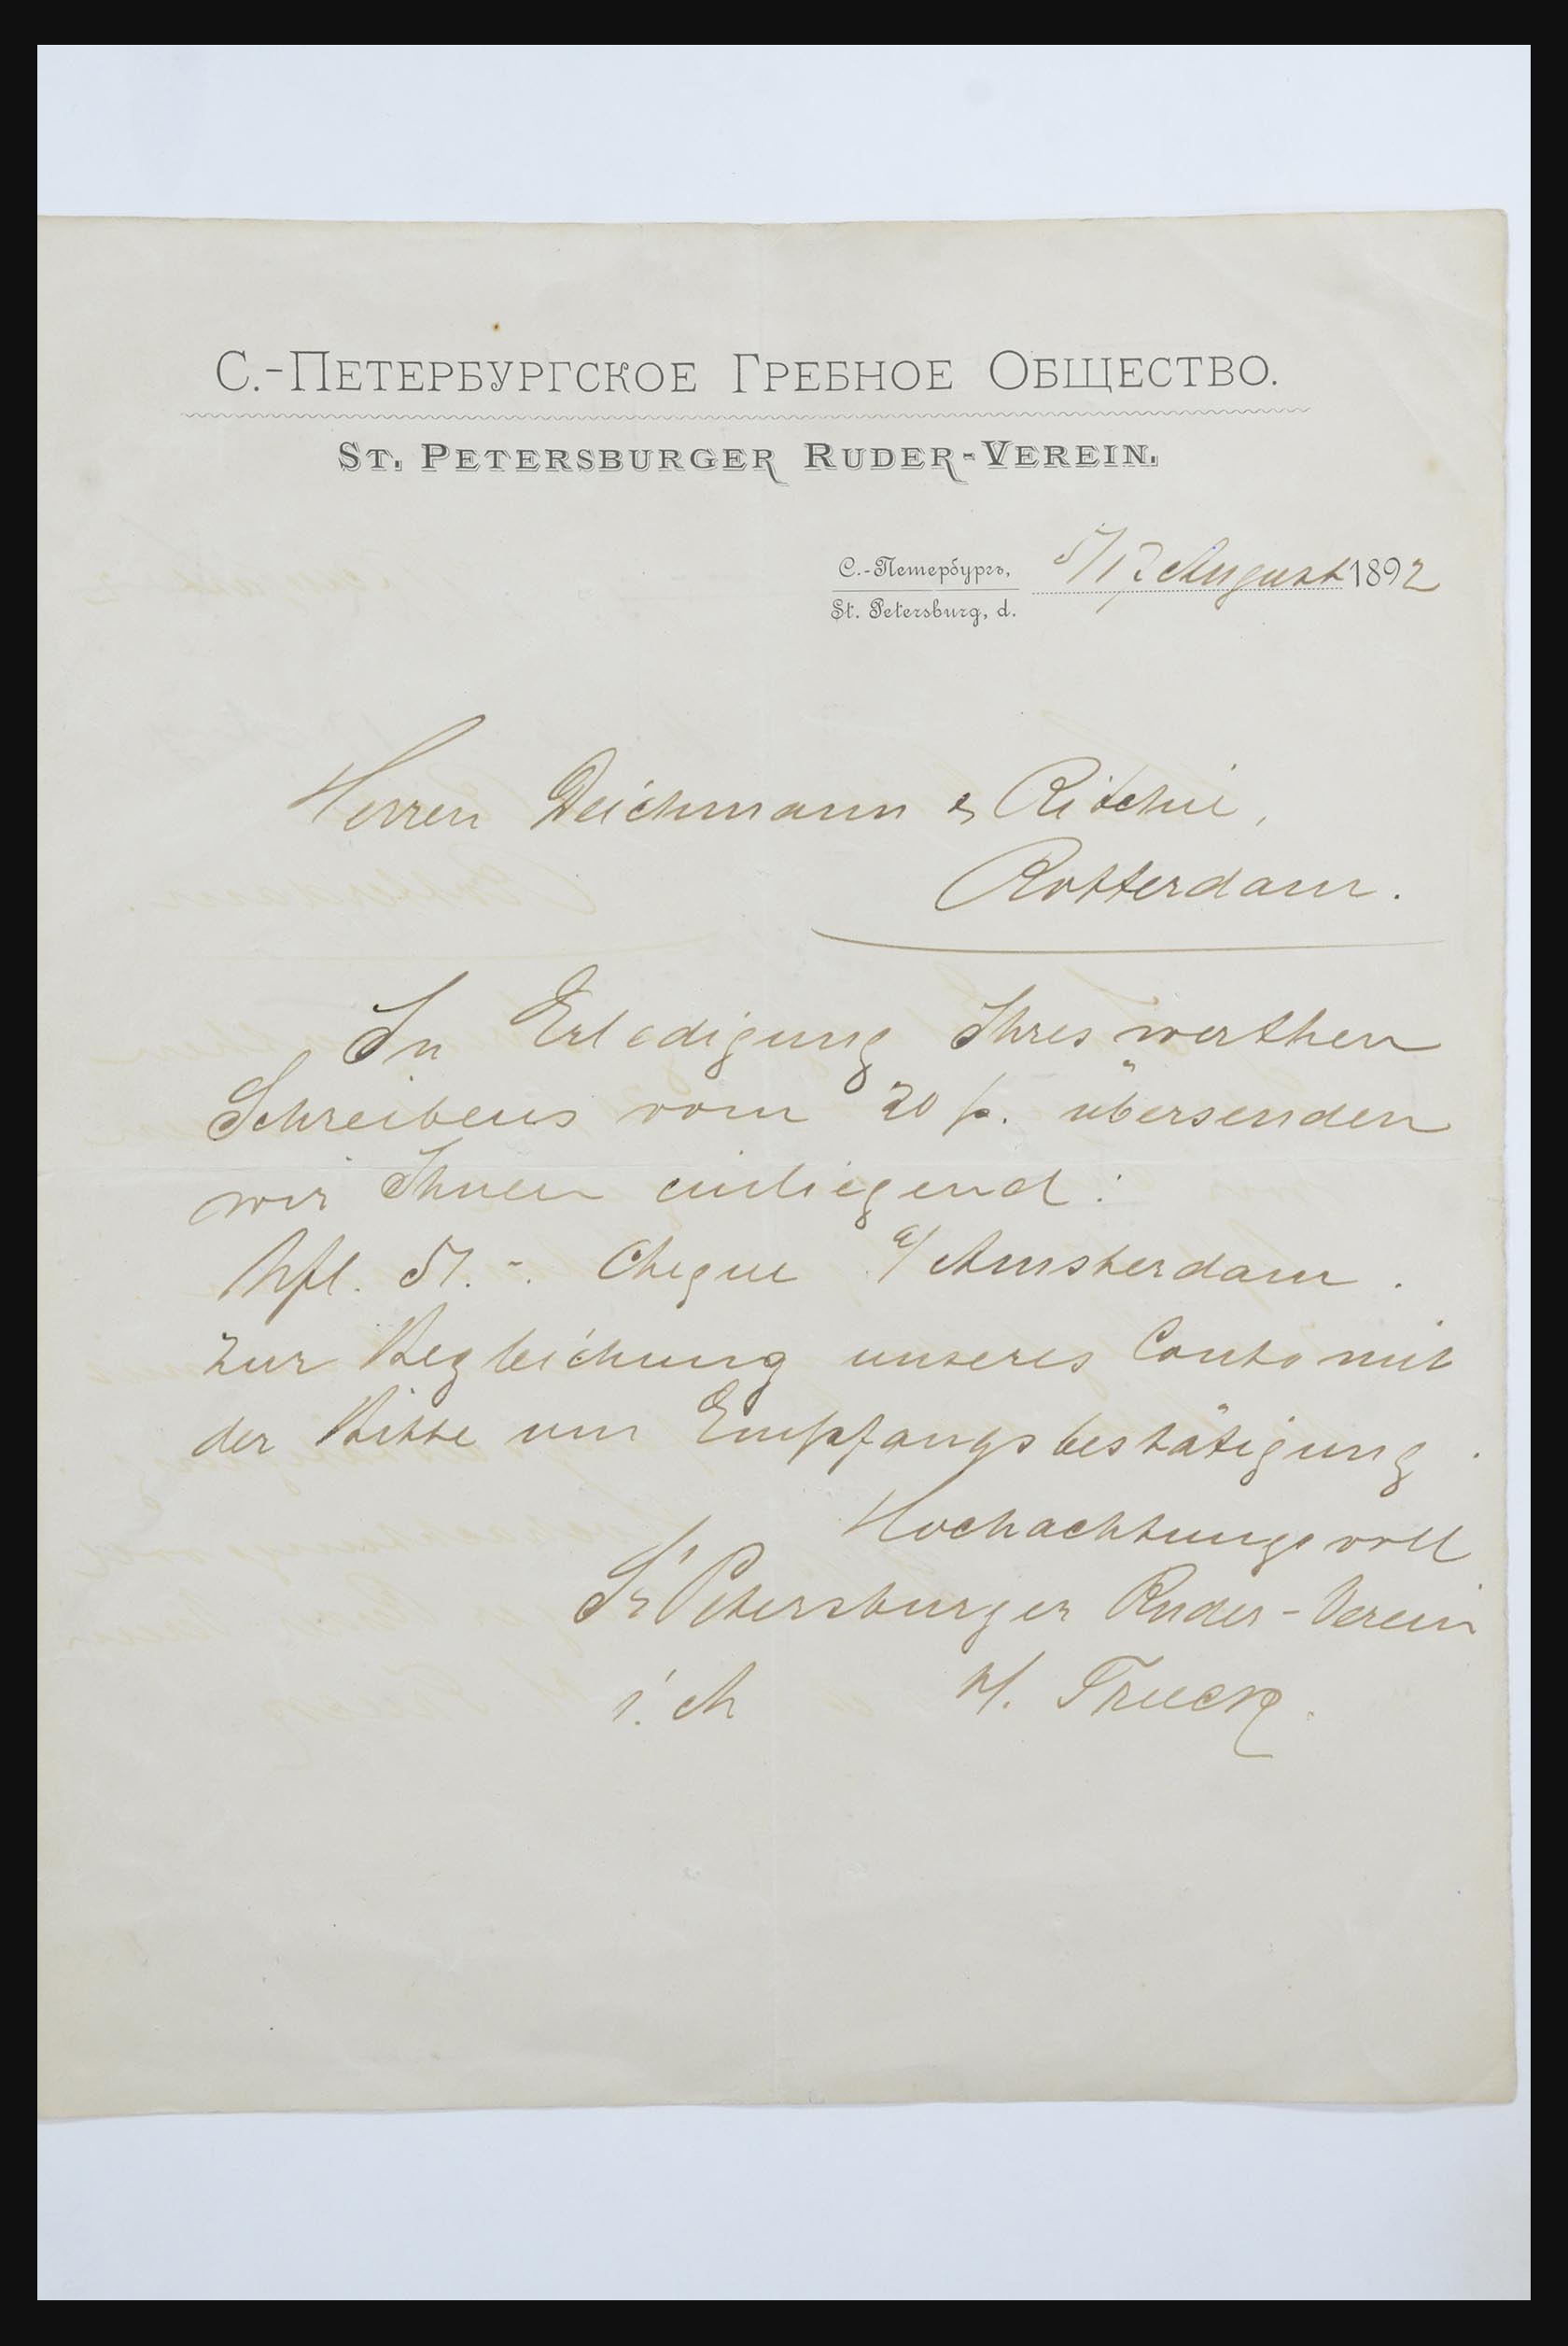 С.-Петербургское Гребное Общество.
St. Petersburger Ruder-Verein.
С.-Петербургъ, 5/17 August 1892
St. Petersburg, d.
Herren Deichmann & Ritchie,
Rotterdam.
In Erledigung Ihres werthen
Schreibens vom 20 p. übersenden
wir Ihnen einliegend:
hfl. 51.-. Cheque a/ Amsterdam.
zur Begleichung unseres Conto mit
der Bitte um Empfangsbestätigung.
Hochachtungsvoll
St Petersburger Ruder-Verein